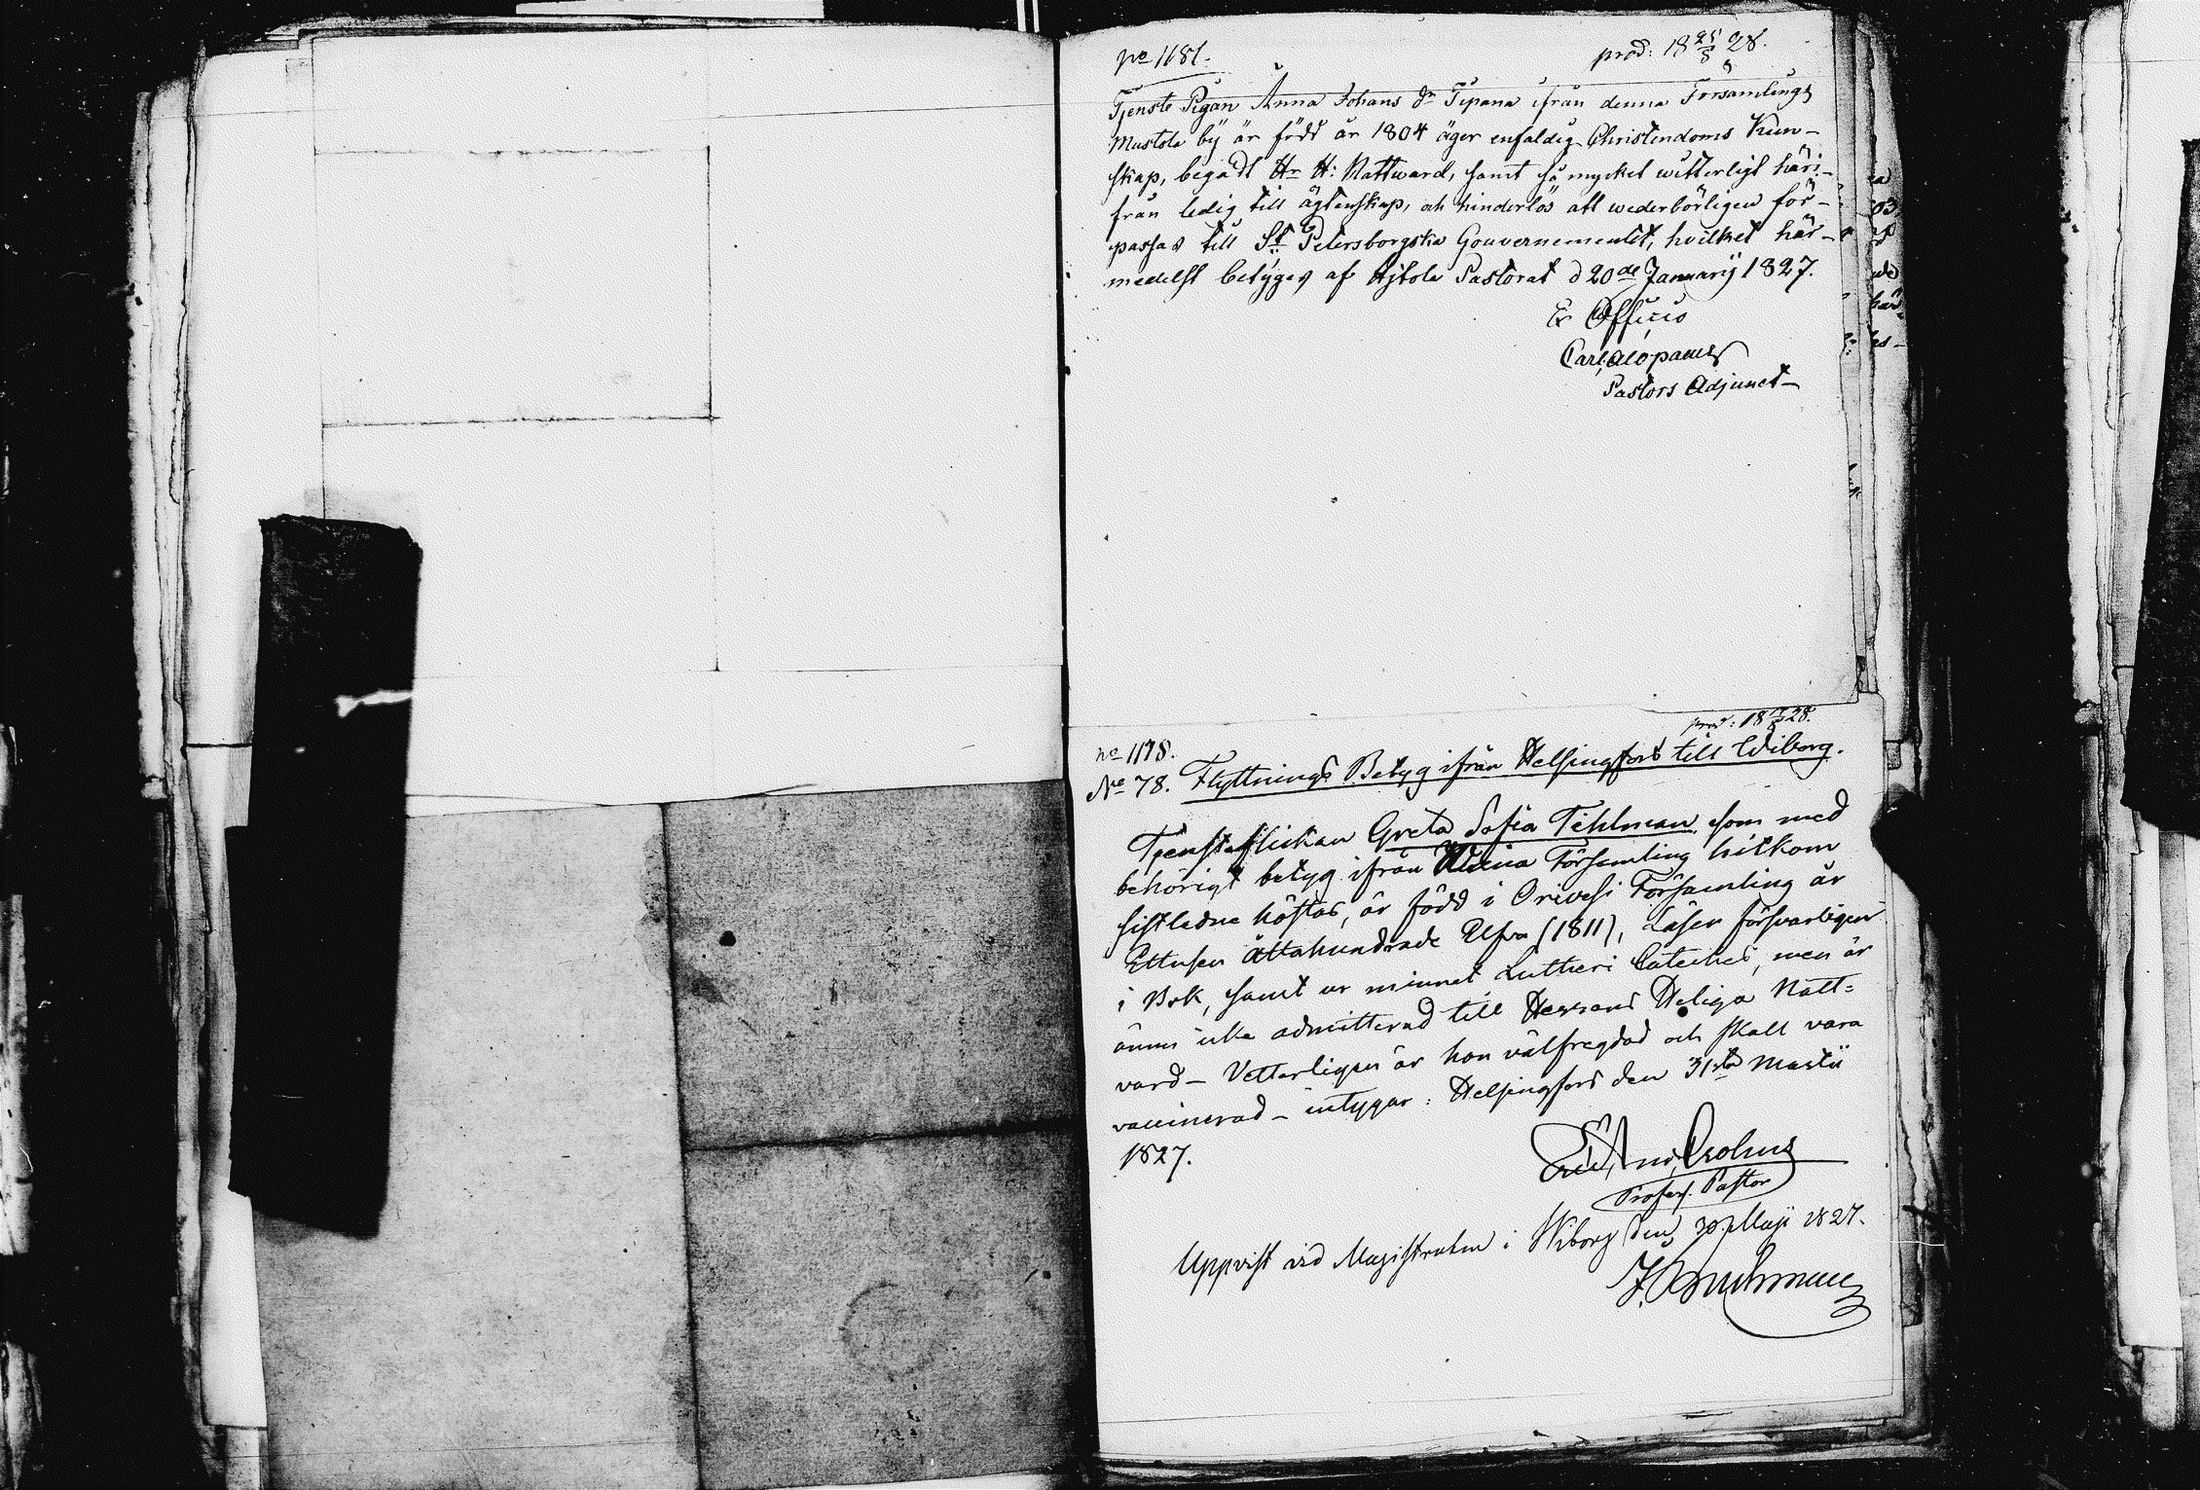 no 1181.
prod: 18 25/8 28.
Tjenste Pigan Anna Johans dr Tipana ifrån denna Församlings
Mustola by är född år 1804 äger enfaldig Christendoms Kun-
skap, begådt Hr H: Nattward, samt så mycket witterligt häri-
från ledig till ägtenskap, och hinderlös att wederbörligen för-
passas till St Petersborgska Gouvernementet, hvilket här-
medelst betyges af Pastorat d 20de Januarij 1827.
Ex Officio
Carl Alopaeus
Pastors Adjunct
prod: 18 28.
no 1178.
No 78. Flyttnings Betyg ifrån Helsingfors till Wiborg.
Tjensteflickan Greta Sofia Tihlman som med
behörigt betyg ifrån Församling hitkom
sistledne höstas, är född i Orivesi Församling år
Ettusen åttahundrade Elfva (1811), Läser försvarligen
i Bok, samt ur minnet Lutheri Cateches, men är
ännu icke admitterad till Herrans Heliga Natt=
vard – Vetterligen är hon välfregdad och skall vara
vaccinerad – intygar: Helsingfors den 31sta Martii
1827.
Crohns
Profess. Pastor
Uppvist vid Magistraten i Wiborg den 30 Maji 1827.